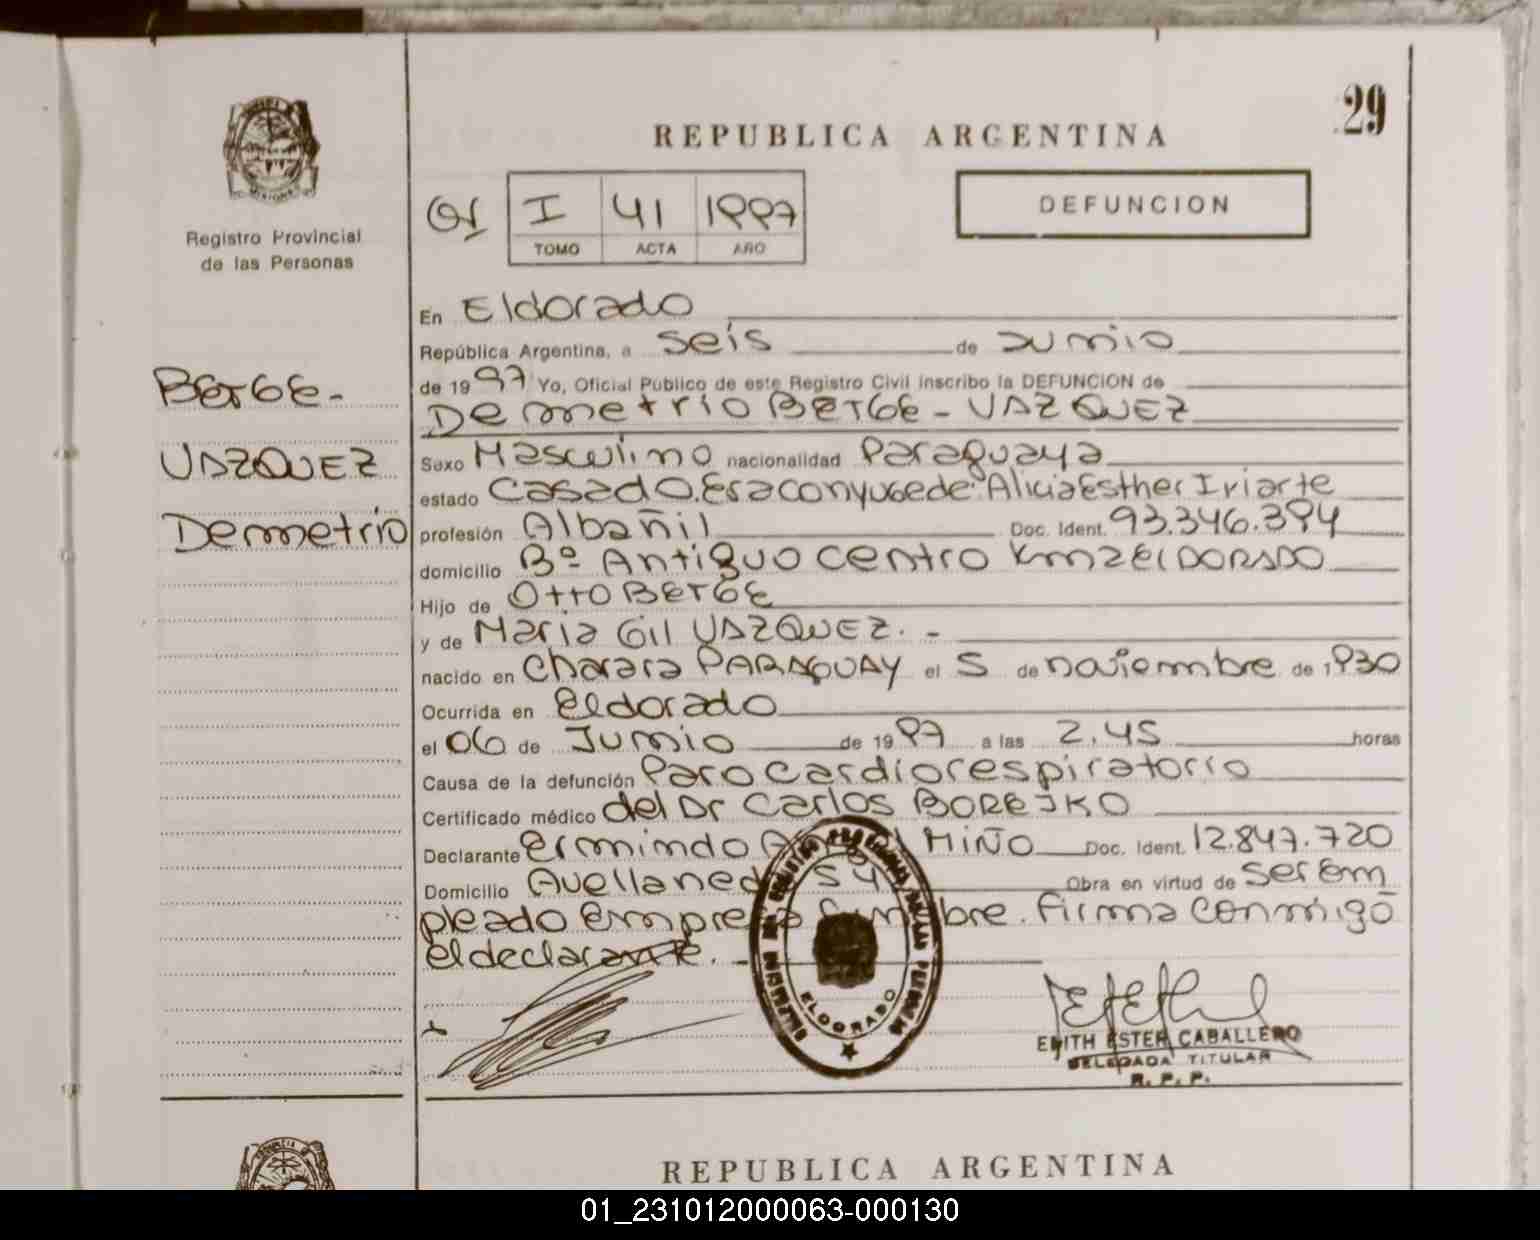 29
REPUBLICA ARGENTINA
I 41 1997
TOMO ACTA AÑO
DEFUNCION
Registro Provincial
de las Personas
BERGE-
VAZQUEZ
Demetrio
En Eldorado
República Argentina, a seis de Junio
de 1997 Yo, Oficial Público de este Registro Civil inscribo la DEFUNCION de
Demetrio BERGE - VAZQUEZ
Sexo Masculino nacionalidad Paraguaya
estado Casado. Era conyuge de: Alicia Esther Iriarte
profesión Albañil Doc. Ident. 93.346.394
domicilio Bº Antiguo Centro Km2 ELDORADO
Hijo de Otto BERGE
y de Maria Gil VAZQUEZ. -
nacido en Charara PARAGUAY el 5 de noviembre de 1930
Ocurrida en Eldorado
el 06 de Junio de 1997 a las 2.45 horas
Causa de la defunción Paro cardiorespiratorio
Certificado médico del Dr Carlos BOREJKO
Declarante Ermindo MIÑO Doc. Ident. 12.847.720
Domicilio Avellaneda 54 Obra en virtud de ser em
pleado empresa fúnebre. Firma conmigo
el declarante.
ELDORADO
EDITH ESTER CABALLERO
DELEGADA TITULAR
R. P. P.
REPUBLICA ARGENTINA
01_231012000063-000130